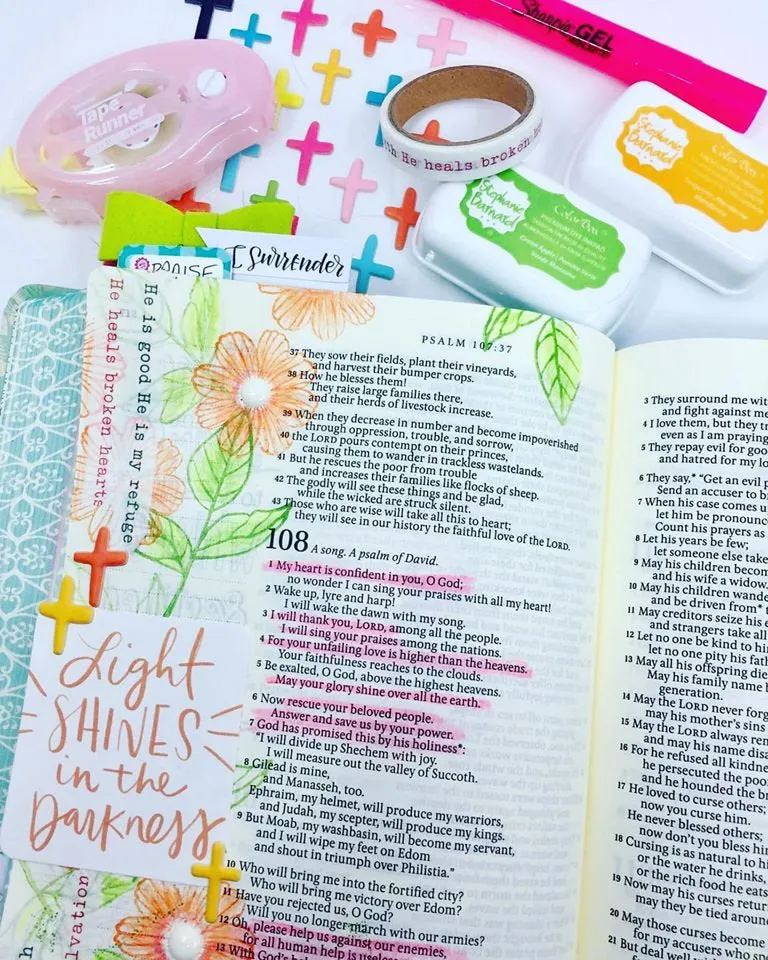 Sharpie GEL
Tape
Runner
with He heals broken
Stephanie
Barnard
ColorBox
PREMIUM DYE INKPAD
Stephanie
Barnard
ColorBox
I SURRENDER
PRAISE
He is good He is my refuge
He heals broken hearts
PSALM 107:37
37 They sow their fields, plant their vineyards,
and harvest their bumper crops.
38 How he blesses them!
They raise large families there,
and their herds of livestock increase.
39 When they decrease in number and become impoverished
through oppression, trouble, and sorrow,
40 the LORD pours contempt on their princes,
causing them to wander in trackless wastelands.
41 But he rescues the poor from trouble
and increases their families like flocks of sheep.
42 The godly will see these things and be glad,
while the wicked are struck silent.
43 Those who are wise will take all this to heart;
they will see in our history the faithful love of the LORD.
108 A song. A psalm of David.
1 My heart is confident in you, O God;
no wonder I can sing your praises with all my heart!
2 Wake up, lyre and harp!
I will wake the dawn with my song.
3 I will thank you, LORD, among all the people.
I will sing your praises among the nations.
4 For your unfailing love is higher than the heavens.
Your faithfulness reaches to the clouds.
5 Be exalted, O God, above the highest heavens.
May your glory shine over all the earth.
6 Now rescue your beloved people.
Answer and save us by your power.
7 God has promised this by his holiness*:
"I will divide up Shechem with joy.
I will measure out the valley of Succoth.
8 Gilead is mine,
and Manasseh, too.
Ephraim, my helmet, will produce my warriors,
and Judah, my scepter, will produce my kings.
9 But Moab, my washbasin, will become my servant,
and I will wipe my feet on Edom
and shout in triumph over Philistia."
10 Who will bring me into the fortified city?
Who will bring me victory over Edom?
11 Have you rejected us, O God?
Will you no longer march with our armies?
12 Oh, please help us against our enemies,
for all human help is useless.
13 With God's
Light
SHINES
in the
Darkness
3 They surround me
and fight against me
4 I love them, but they
even as I am praying
5 They repay evil for
and hatred for my
6 They say,* "Get an evil
Send an accuser to
7 When his case comes
let him be
Count his prayers as
8 Let his years be few;
let someone else take
9 May his children
and his wife a widow.
10 May his children
and be driven from*
11 May creditors seize his
and strangers take all
12 Let no one be kind to
let no one pity his
13 May all his offspring
May his family name
generation.
14 May the LORD never
may his mother's sins
15 May the LORD always
and may his name
16 For he refused all
he persecuted the
and he hounded the
17 He loved to curse others;
now you curse him.
He never blessed others;
now don't you bless
18 Cursing is as natural to
or the water he drinks,
or the rich food he eats
19 Now may his curses
may they be tied
20 May those curses become
for my accusers who
21 But deal well